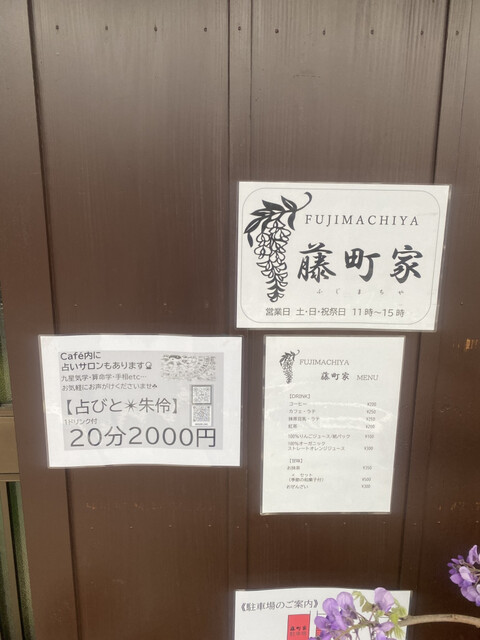 FUJIMACHIYA
藤町家
ふじまちや
営業日 土・日・祝祭日 11時～15時
Café内に
占いサロンもあります
九星気学・算命学・手相etc…
お気軽にお声がけくださいませ
【占びと✴朱伶】
1ドリンク付
20分2000円
FUJIMACHIYA
藤町家 MENU
【DRINK】
コーヒー
カフェ・ラテ
抹茶豆乳・ラテ
紅茶
100%りんごジュース/紙パック
100%オーガニック
ストレートオレンジジュース
【甘味】
お抹茶
セット
(季節の和菓子付)
おぜんざい
《駐車場のご案内》
藤町家